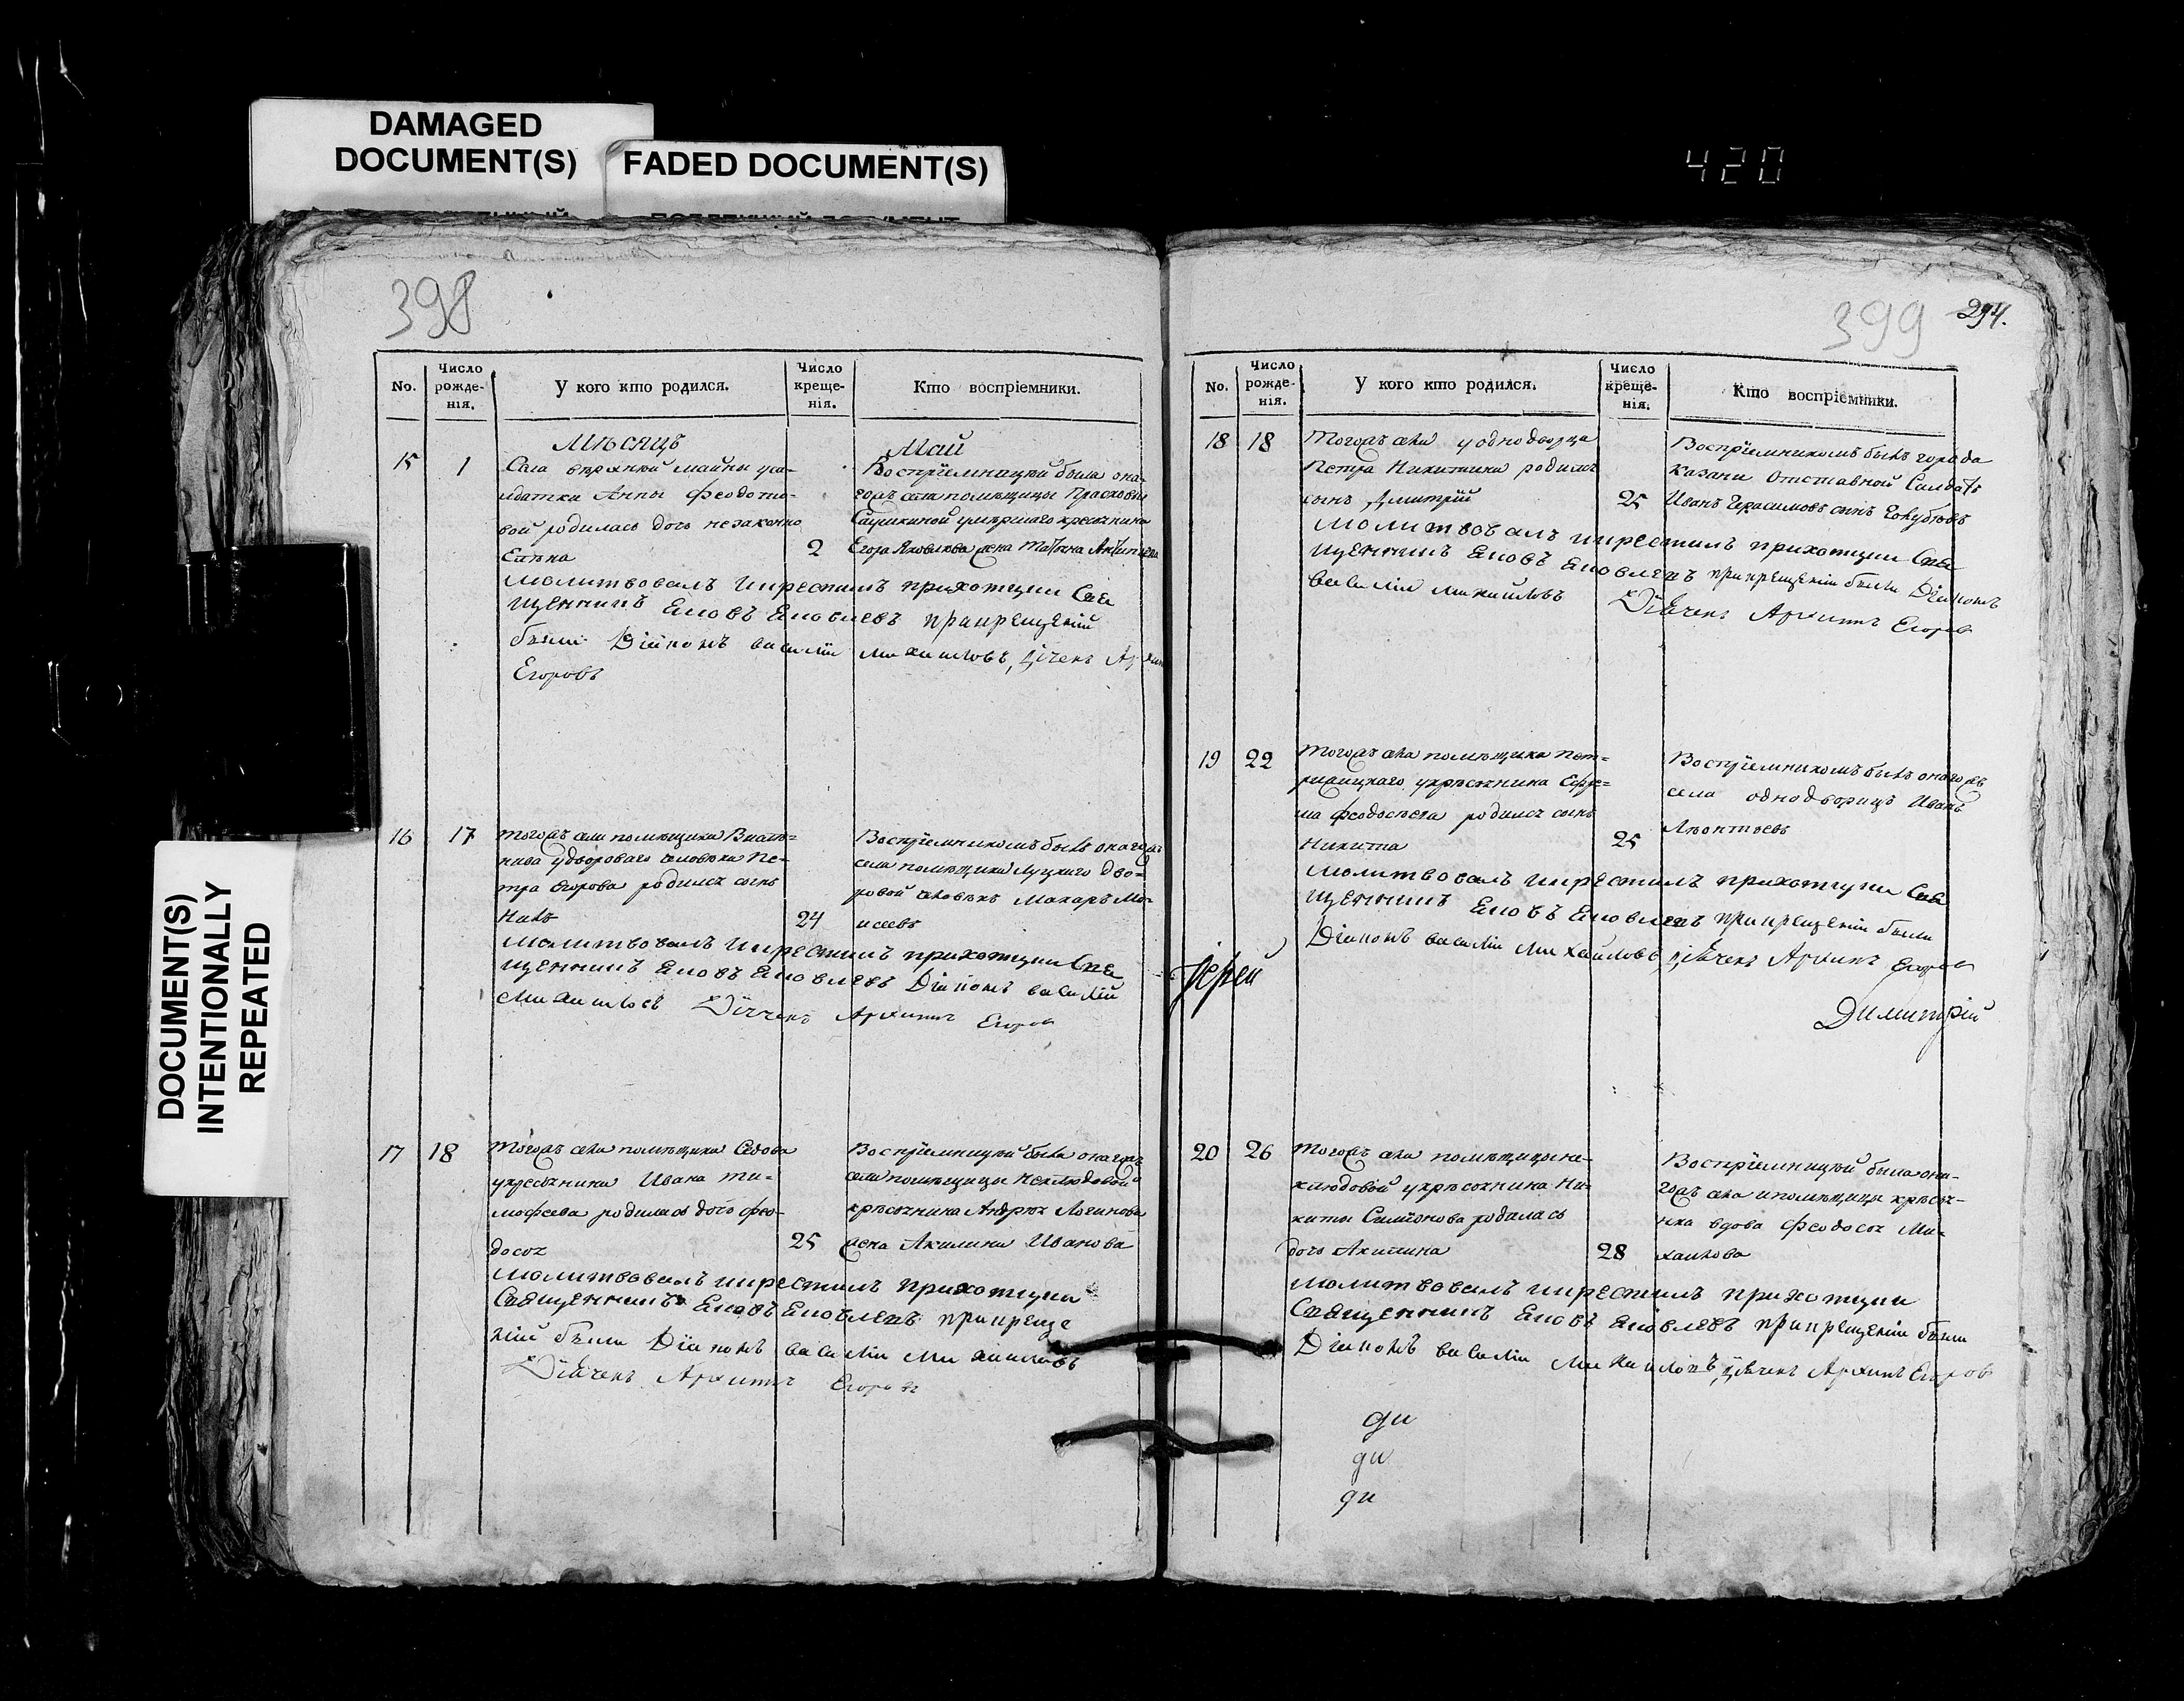 DAMAGED
DOCUMENT(S)
FADED DOCUMENT(S)
420
DOCUMENT(S)
INTENTIONALLY
REPEATED
398
No.
Число
рожде-
нія.
У кого кто родился.
Число
креще-
нія.
Кто воспріемники.
Мѣсяцъ
Май
15
1
Села
майны
Анны Феодото-
вой родилась дочь незаконно
Елена
2
Воспріемницей была она-
гожъ села помѣщицы Прасковьи
умершаго крестьянина
Егора Яковлева жена Татьяна
Молитвовалъ и крестилъ приходящи Свя
щенникъ Яковъ Яковлевъ при крещеній
были Діяконъ василій михаиловъ, дячекъ Архипъ
Егоровъ
16
17
тогожъ села помѣщика
удвороваго человѣка Пе-
тра Егорова родился сынъ
24
Воспріемникомъ былъ онагожъ
села помѣщика Луцкаго дво-
ровой человѣкъ Макаръ Мо-
исеевъ
Молитвовалъ и крестилъ приходящи Свя
щенникъ Яковъ Яковлевъ Діяконъ василій
михаиловъ Дячекъ Архипъ Егоровъ
17
18
тогожъ села помѣщика Седова
укресьянина Ивана Ти-
мофеева родилась дочь Фео-
досья
25
Воспріемницей была онагожъ
села помѣщицы Неклюдовой
крѣсьянина Андрея Логинова
жена Акилина Иванова
Молитвовалъ и крестилъ приходящи
Священникъ Яковъ Яковлевъ при креще
ній были Діяконъ василій михаиловъ
Дячекъ Архипъ Егоровъ
399
294.
No.
Число
рожде-
нія.
У кого кто родился.
Число
креще-
нія.
Кто воспріемники.
18
18
Тогожъ села у однодворца
Петра Никитина родился
сынъ Дмитрій
25
Воспріемникомъ былъ города
Казани отставной Салдатъ
Иванъ Герасимовъ сынъ
Молитвовалъ и крестилъ приходящи Свя
щенникъ Яковъ Яковлевъ при крещеніи были Діяконъ
василій михаиловъ Дячекъ Архипъ Егоровъ
19
22
Тогожъ села помѣщика
укрѣсьянина
Феодосѣева родился сынъ
Никита
25
Воспріемникомъ былъ онагожъ
села однодворецъ Иванъ
Леонтьевъ
Молитвовалъ и крестилъ приходящи Свя
щенникъ Яковъ Яковлевъ при крещеніи были
Діяконъ василій михаиловъ, дячекъ Архипъ Егоровъ
Іерей
Димитрій
20
26
Тогожъ села помѣщицы не-
клюдовой укрѣсьянина Ни-
киты Симіонова родилась
дочь Акилина
28
Воспріемницей была она-
гожъ села и помѣщицы крѣсья-
нка вдова Феодосья Ми-
хаилова
Молитвовалъ и крестилъ приходящи
Священникъ Яковъ Яковлевъ при крещеніи были
Діяконъ василій михаиловъ, дячекъ Архипъ Егоровъ
ди
ди
ди